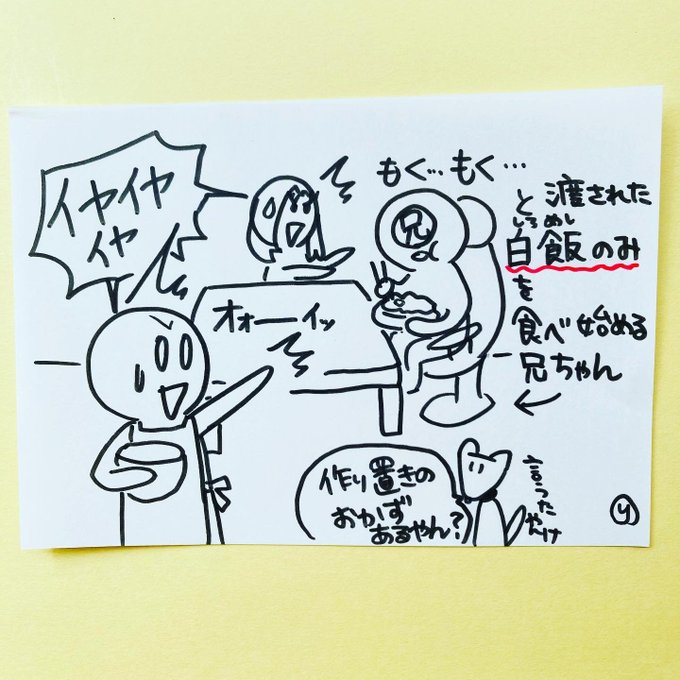 イヤイヤ
イヤ
オォーイッ
もく…もく…
兄
と渡された
しろ めし
白飯のみ
を
食べ始める
兄ちゃん
作り置きの
おかず
あるやん？
言った
やんけ